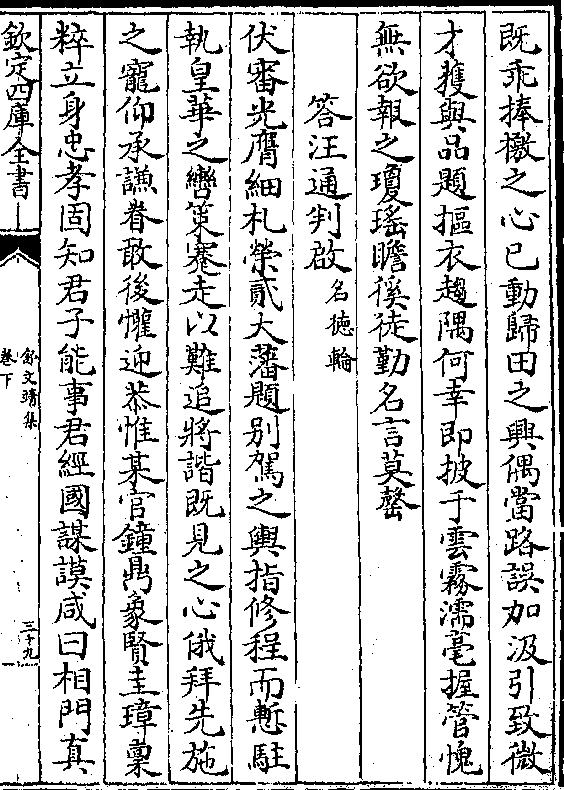 既乖捧檄之心已動歸田之興偶當路誤加汲引致微
才獲與品題摳衣趨隅何幸即披于雲霧濡毫握管愧
無欲報之瓊瑶瞻徯徒勤名言莫罄
答汪通判啟名徳輪
伏審光膺細札榮貳大藩題别駕之輿指修程而慙駐
執皇華之轡策蹇走以難追將諧既見之心俄拜先施
之寵仰承謙眷敢後懽迎恭惟某官鐘鼎象賢圭璋稟
粹立身忠孝固知君子能事君經國謀謨咸曰相門真
欽定四庫全書
舒文靖集
卷下
三十九